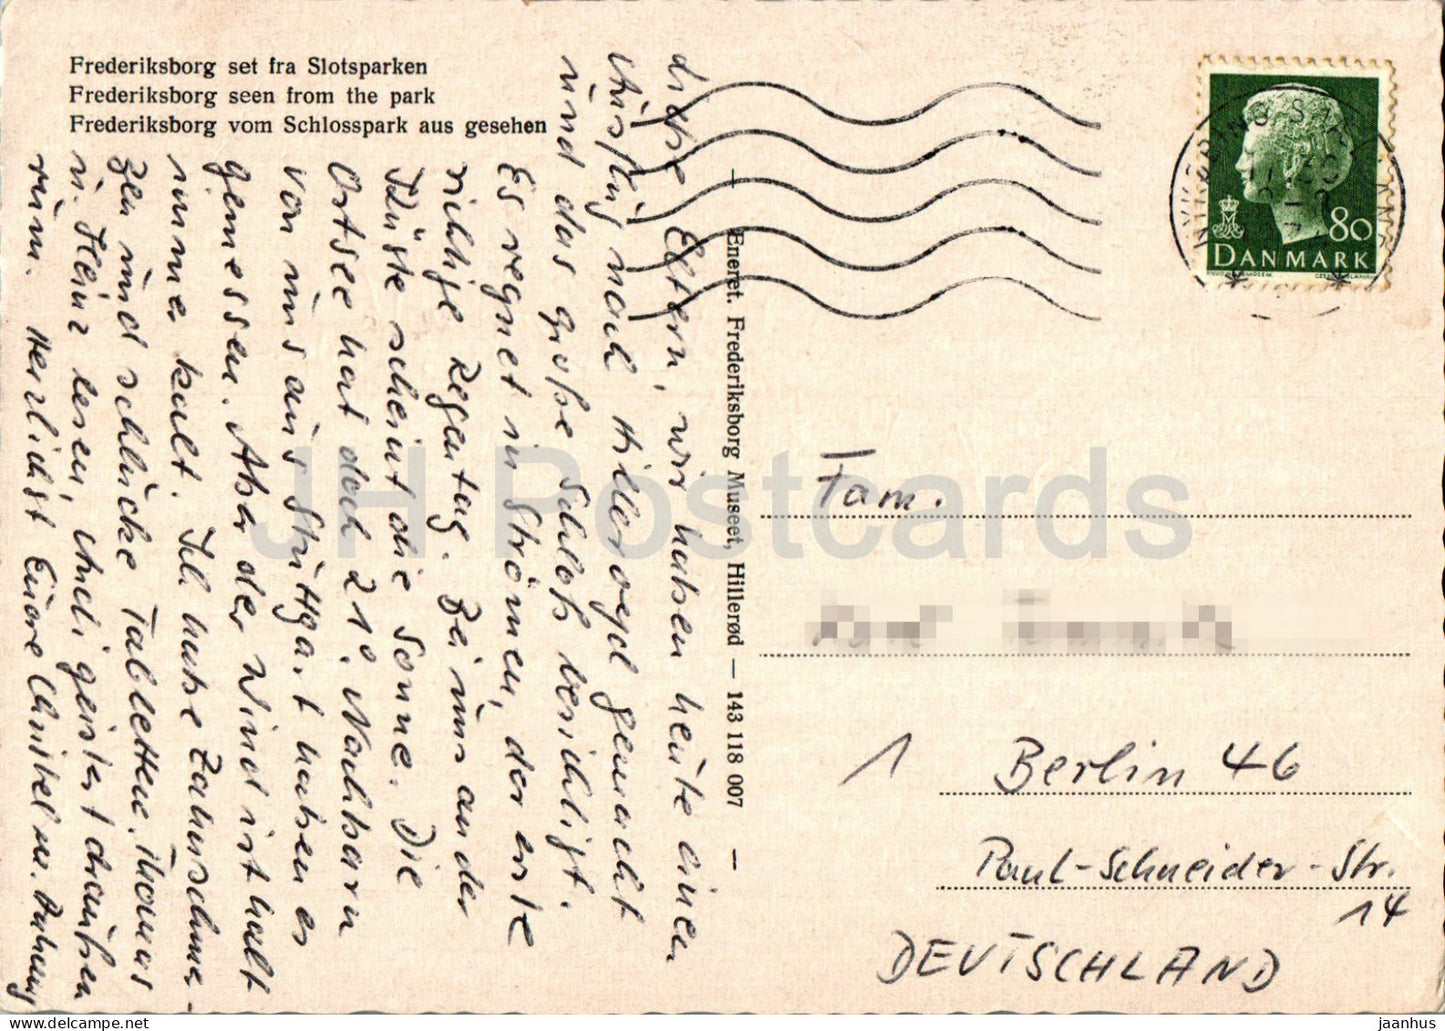 Frederiksborg set fra Slotsparken
Frederiksborg seen from the park
Frederiksborg vom Schlosspark aus gesehen
Liebe Eltern, wir haben heute einen
Ausflug nach Hilleroed gemacht
und das große Schloß besichtigt.
Es regnet in Strömen, der erste
richtige Regentag. Bei uns an der
Küste scheint die Sonne. Die
Ostsee hat doch 21°. Nachbarn
von uns aus Stuttgart haben es
gemessen. Aber der Wind ist halt
immer kalt. Ich habe Zahnschmer-
zen und schlucke Tabletten. Thomas
u. Heinz lesen, Andi geistert draußen
rum. Herzlichst Euere Christel m. Anhang
Eneret. Frederiksborg Museet, Hillerød — 143 118 007 —
80
DANMARK
Fam.
1 Berlin 46
Paul-Schneider-Str.
14
DEUTSCHLAND
JH Postcards
© www.delcampe.net
jaanhus